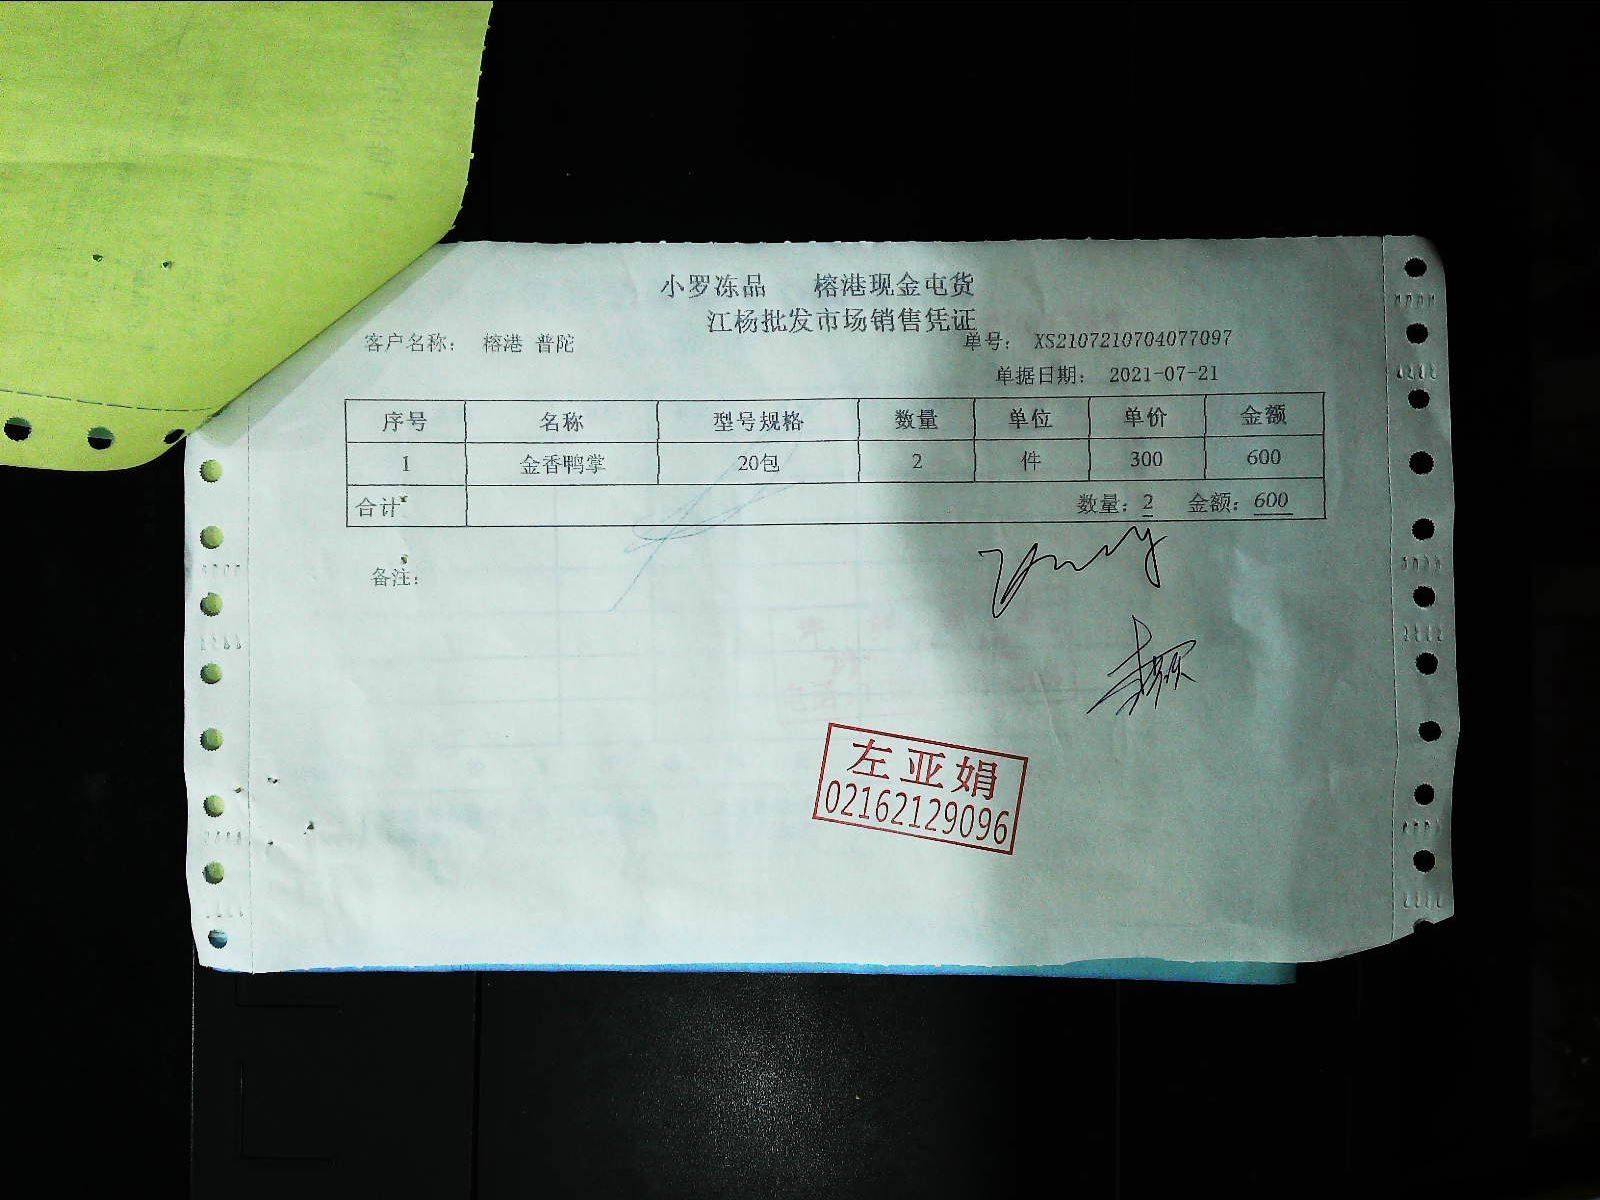 小罗冻品 榕港现金屯货
江杨批发市场销售凭证
客户名称： 榕港 普陀 单号： XS2107210704077097
单据日期： 2021-07-21
序号 名称 型号规格 数量 单位 单价 金额
1 金香鸭掌 20包 2 件 300 600
合计 数量：2 金额：600
备注：
左亚娟
02162129096